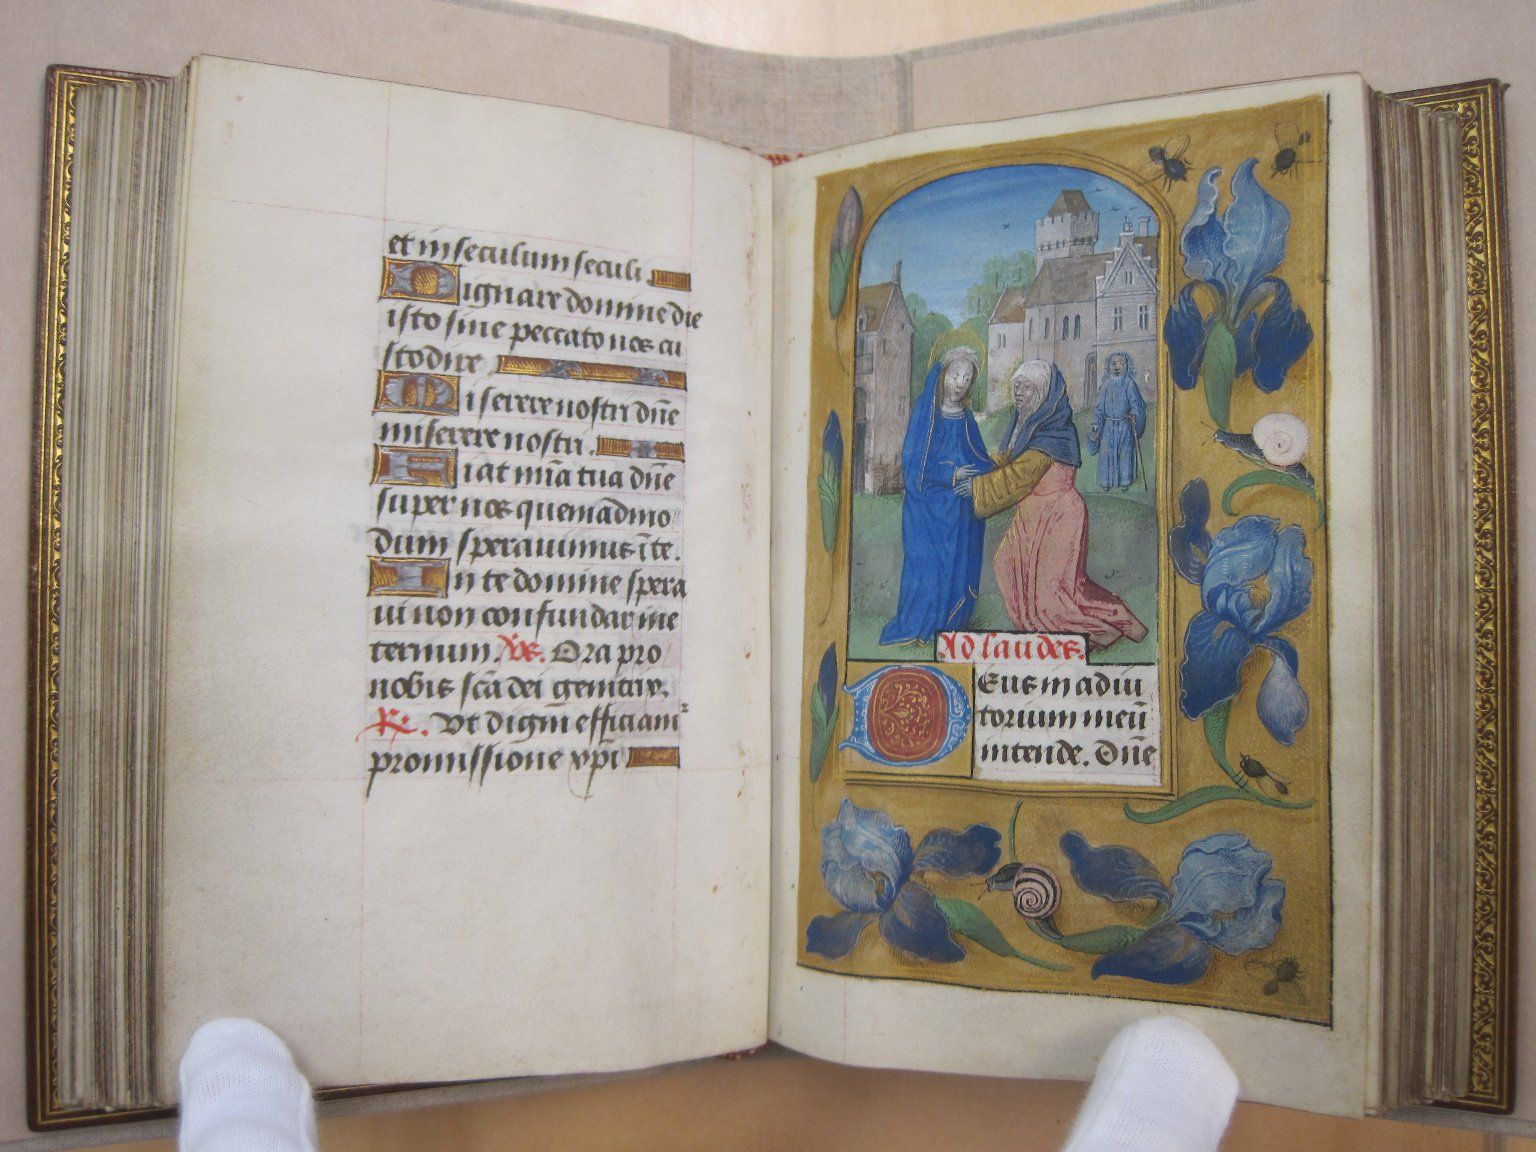 et in seculum seculi.
Dignare domine die
isto sine peccato nos cu
stodire.
Miserere nostri dñe
miserere nostri.
Fiat mĩa tua dñe
super nos quemadmo
dum speravimus ĩ te.
In te domine spera
vi non confundar in e
ternum. Vs. Ora pro
nobis sc̃a dei genitrix.
R. Ut digni efficiam²
promissione xp̃i
Ad laudes.
Deus in adiu
torium meũ
intende. Dñe